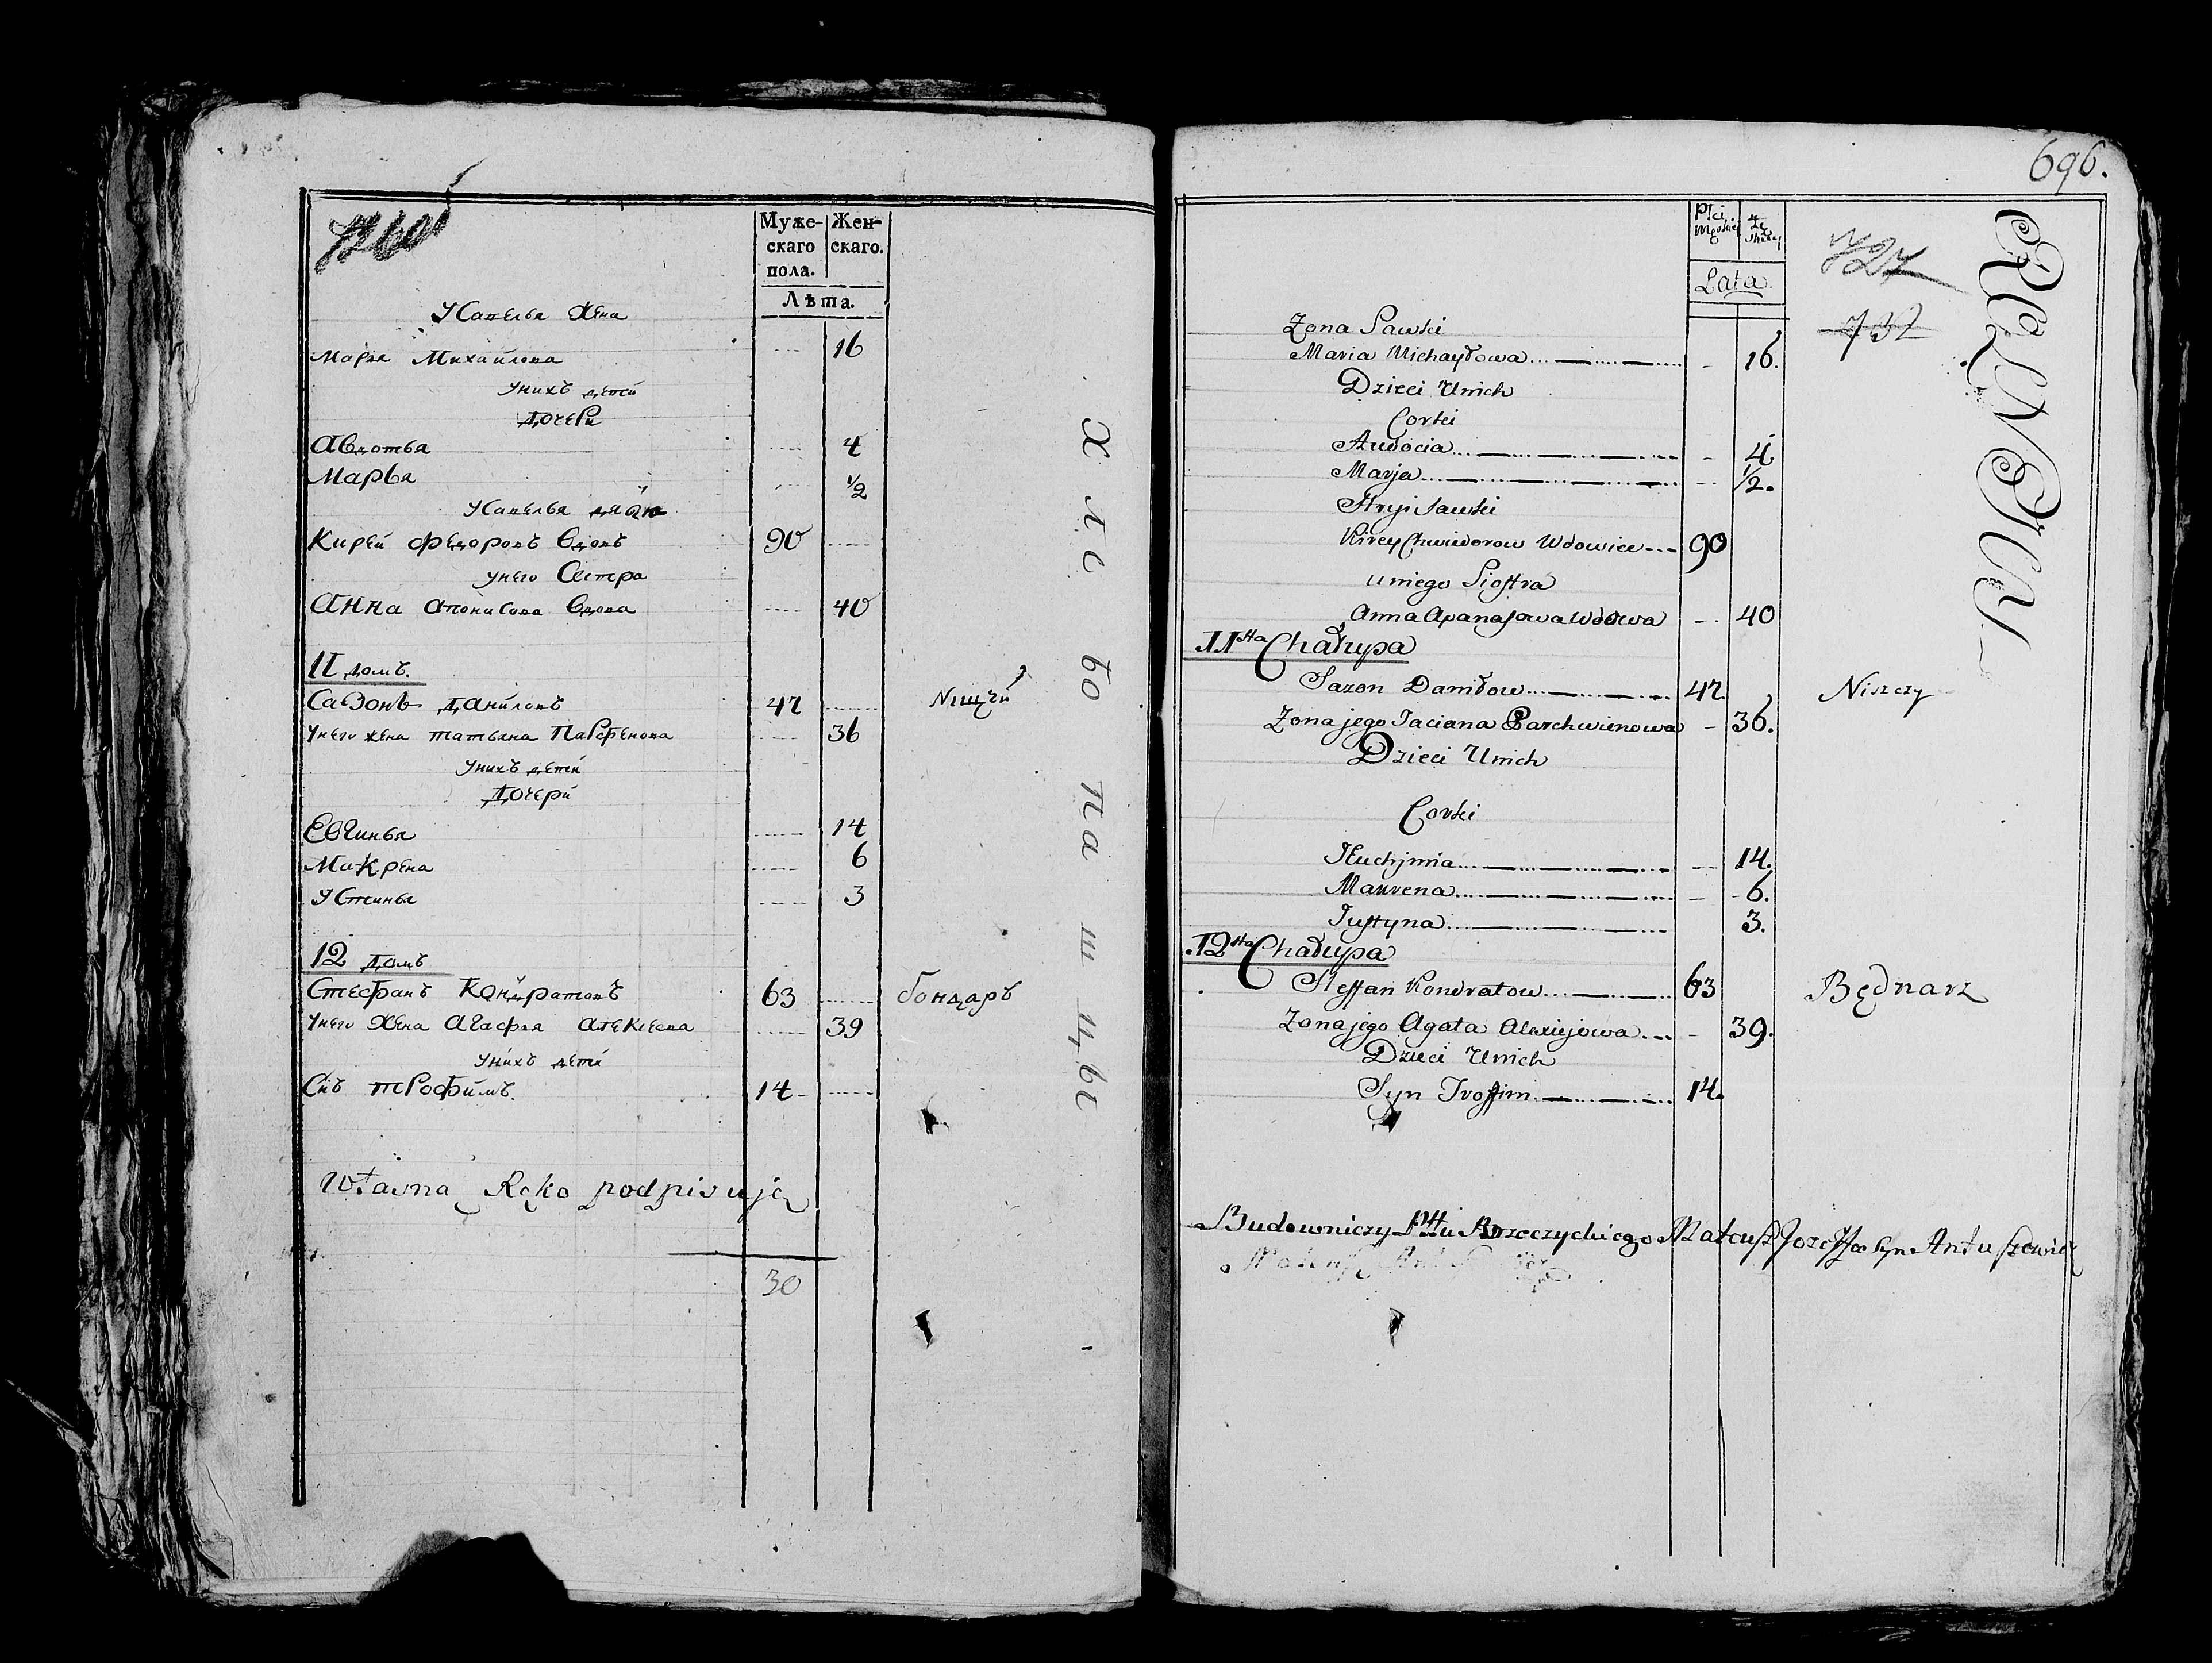 Муже-
скаго
пола.
Жен-
скаго.
Лѣта.
жена
16
Марья Михайлова
унихъ дети
дочери
Авдотья 4
Марья 1/2
Кирей Федоровъ вдовъ 90
унего Сестра
Анна вдова 40
11 домъ.
Сазонъ Данiловъ 47
унего жена татьяна Парфенова 36
унихъ дети
Дочери
Евгинья 14
Макрена 6
Устинья 3
12 домъ
Стефанъ Кондратовъ 63 бондаръ
унего жена Агафья Алексеева 39
унихъ дети
Снъ трофимъ. 14
Własną Ręko podpisuję
30
696.
Płci
Męskiej
Że
skiey
Lata
727
732
Zona Sawki
Maria Michayłowa 16.
Dzieci Unich
Corki
Audocia 4
Marja 1/2.
Stryi Sawki
Kirey Chwiedorow Wdowiec 90
uniego Siostra
Anna Apanasowa Wdowa 40
11sta Chałupa
Sazon Daniłow 47. Niszczy
Zona jego Taciana Parchwienowa 36.
Dzieci Unich
Corki
Jeuchjmia 14.
Makrena 6.
Justyna 3.
12sta Chałupa
Steffan Kondratow 63 Będnarz
Zona jego Agata Alexiejowa 39.
Dzieci Unich
Syn Troffim 14.
Budowniczy Pttu Rzeczyckiego Mateusz Jozeffa Syn Antuszewicz